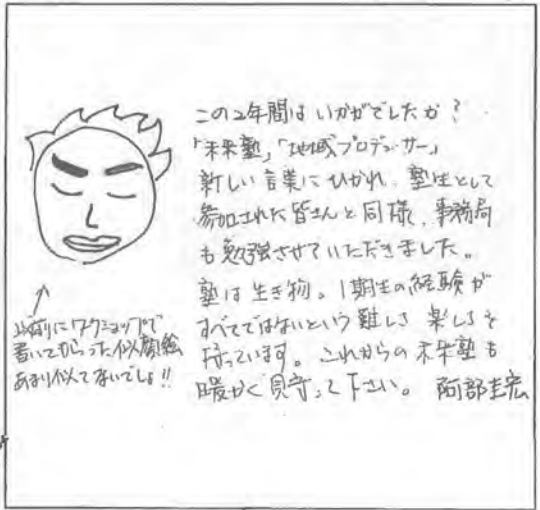 この2年間はいかがでしたか?
「未来塾」「地域プロデューサー」
新しい言葉にひかれ、塾生として
参加された皆さんと同様、事務局
も勉強させていただきました。
塾は生き物。1期生の経験が
すべてではないという難しさ 楽しさを
持っています。これからの未来塾も
暖かく見守って下さい。 阿部圭宏
↑
以前にワークショップで
書いてもらった似顔絵
あまり似てないでしょ!!